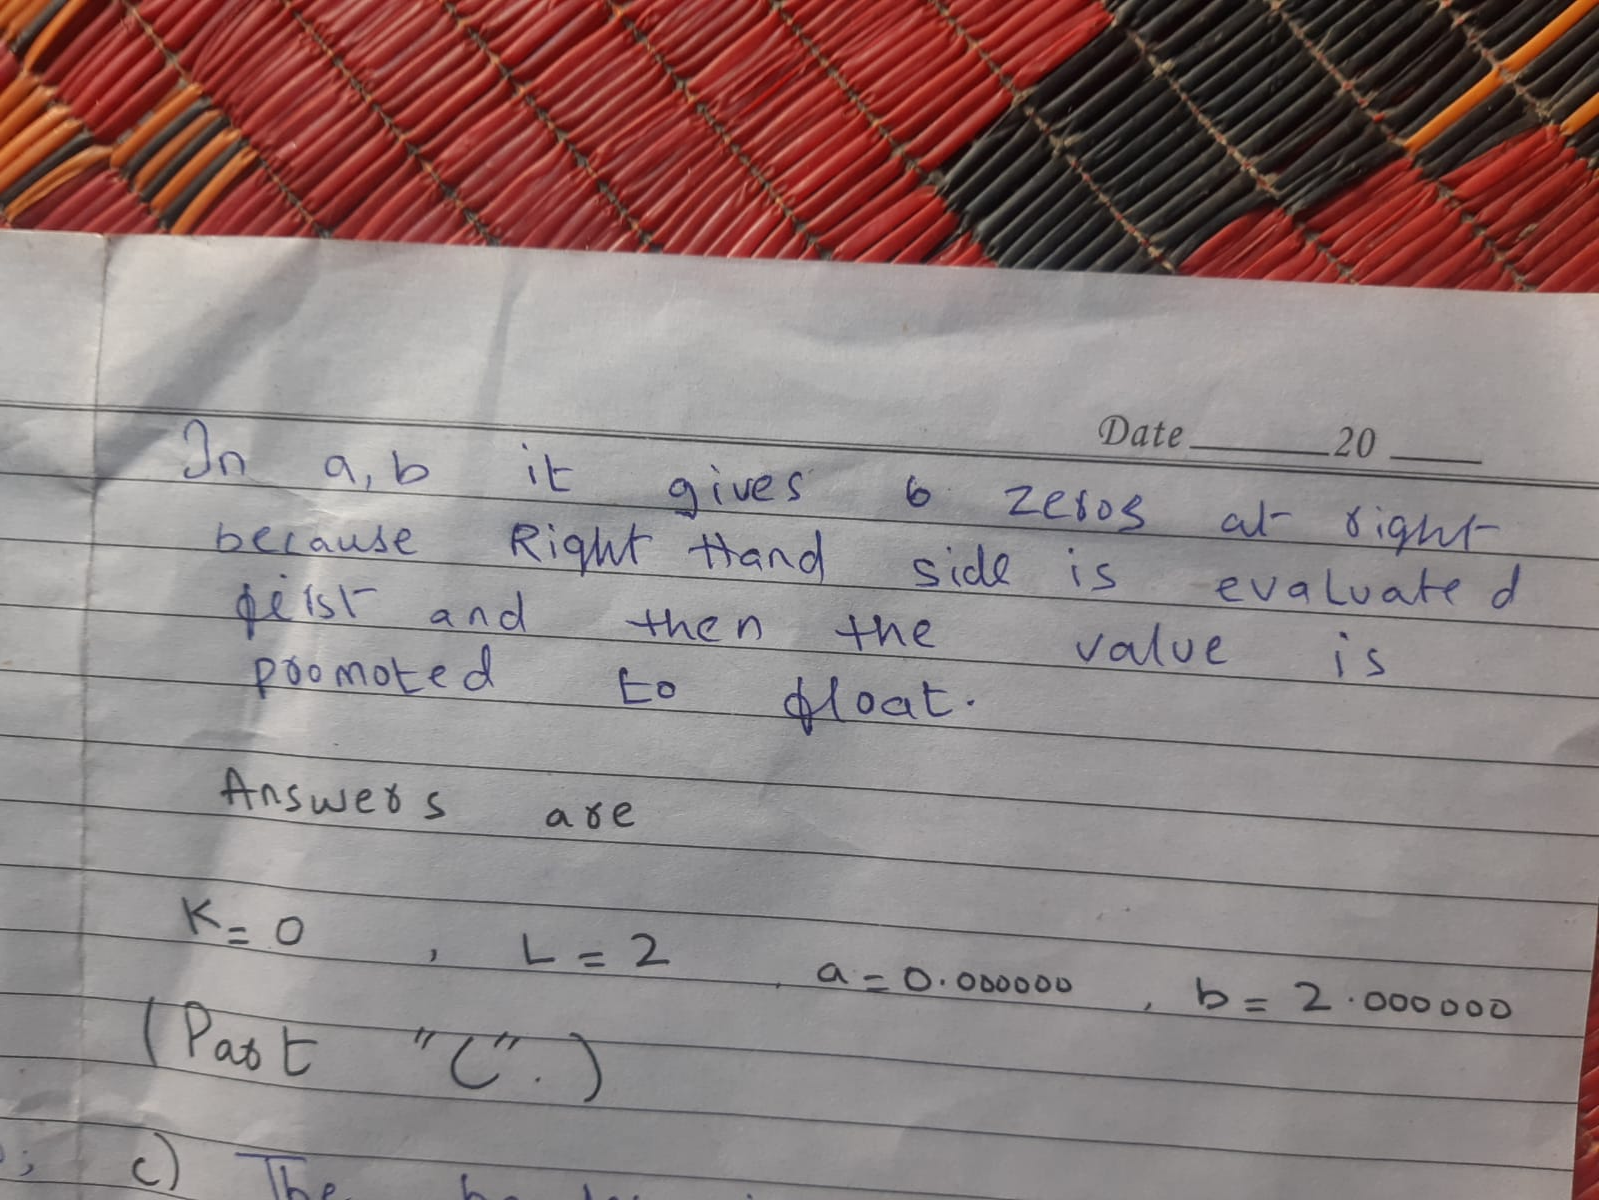 Date ______ 20 ____
In a, b it gives 6 zeros at right
because Right Hand side is evaluated
first and then the value is
promoted to float.
Answers are
K=0 , L=2 , a=0.000000 , b=2.000000
(Part "C".)
c) The